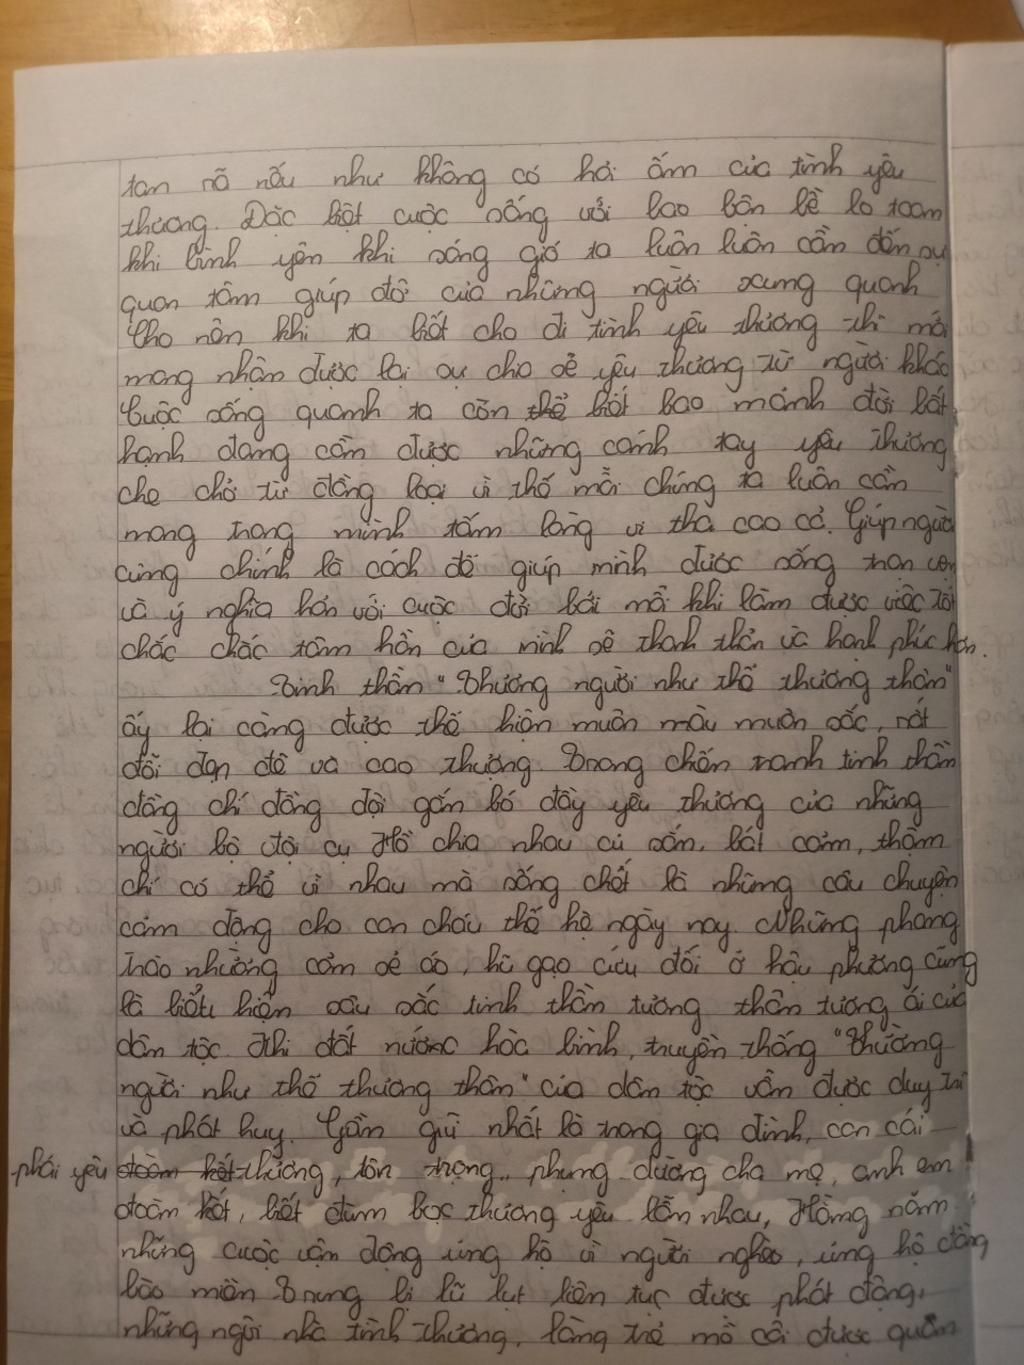 tan rã nếu như không có hơi ấm của tình yêu
thương. Đặc biệt cuộc sống với bao bộn bề lo toan
khi bình yên khi sóng gió ta luôn luôn cần đến sự
quan tâm giúp đỡ của những người xung quanh
Cho nên khi ta biết cho đi tình yêu thương thì mới
mong nhận được lại sự chia sẻ yêu thương từ người khác
Cuộc sống quanh ta còn biết bao mảnh đời bất
hạnh đang cần được những cánh tay yêu thương
che chở từ đồng loại vì thế mỗi chúng ta luôn cần
mang trong mình tấm lòng vị tha cao cả. Giúp người
cũng chính là cách để giúp mình được sống trọn vẹn
và ý nghĩa hơn với cuộc đời bởi mỗi khi làm được việc tốt
chắc chắc tâm hồn của mình sẽ thanh thản và hạnh phúc hơn.
Tinh thần "Thương người như thể thương thân"
ấy lại càng được thể hiện muôn màu muôn sắc, rất
đỗi đẹp đẽ và cao thượng. Trong chiến tranh tinh thần
đồng chí đồng đội gắn bó đầy yêu thương của những
người bộ đội cụ Hồ chia nhau củ sắn, bát cơm, thậm
chí có thể vì nhau mà sống chết là những câu chuyện
cảm động cho con cháu thế hệ ngày nay. Những phong
trào nhường cơm sẻ áo, hũ gạo cứu đói ở hậu phương cũng
là biểu hiện sâu sắc tinh thần tương thân tương ái của
dân tộc. Khi đất nước hòa bình, truyền thống "Thương
người như thể thương thân" của dân tộc vẫn được duy trì
và phát huy. Gần gũi nhất là trong gia đình, con cái
phải yêu thương, tôn trọng, phụng dưỡng cha mẹ, anh em
đoàn kết, biết đùm bọc thương yêu lẫn nhau, Hằng năm
những cuộc vận động ủng hộ vì người nghèo, ủng hộ đồng
bào miền Trung bị lũ lụt liên tục được phát động,
những ngôi nhà tình thương, làng trẻ mồ côi được quan